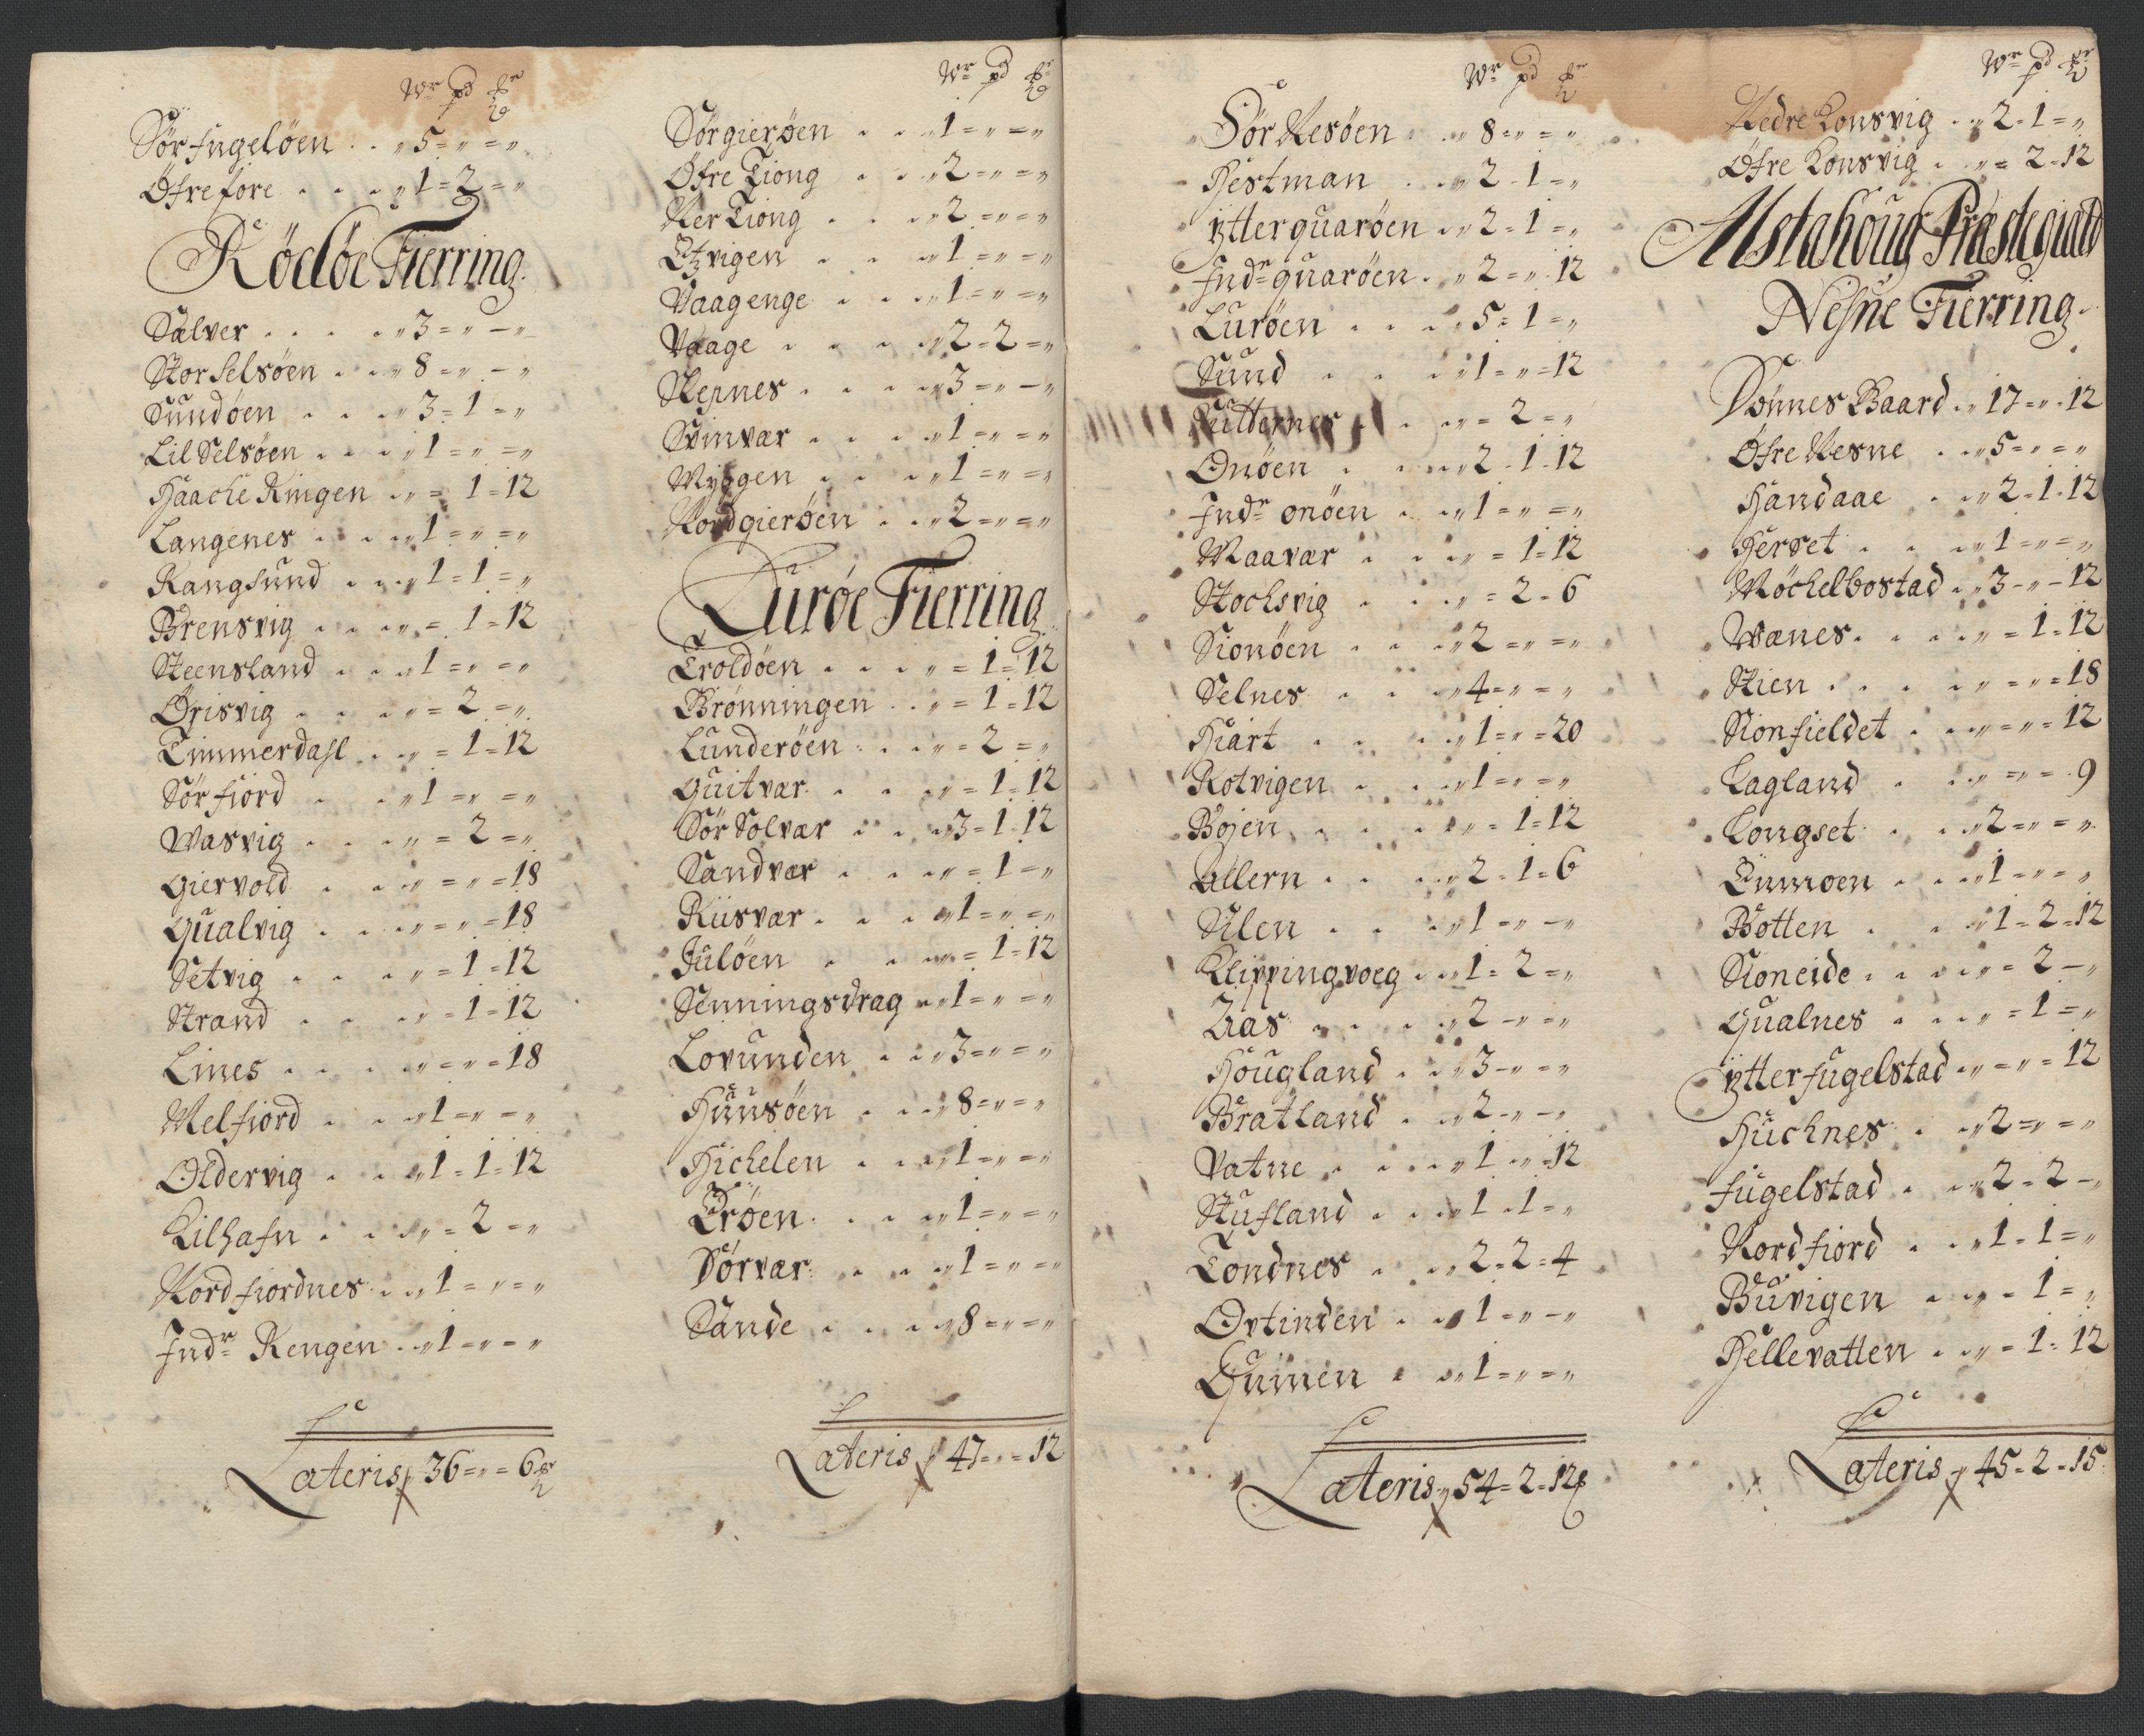 Wr pd
Sörfugelöen . . „ 5 = „ = „
Öfre fore . . . „ 1 = 2 = „
Rödöe Fierring.
Sælver . . . . „ 3 = „ – „
Stor Selsöen . . „ 8 = „ – „
Sundöen . . . „ 3 = 1 = „
Lil Selsöen . . . „ 1 = „ = „
Haache Ringen . „ = 1 = 12
Langenes . . . „ 1 = „ = „
Rangsund . . . „ 1 = 1 = „
Brensvig . . . „ = 1 = 12
Steensland . . . „ 1 = „ = „
Örisvig . . . „ = 2 = „
Timmerdahl . . „ = 1 = 12
Sör fiord . . „ 1 = „ = „
Wasvig . . . „ = 2 = „
Giervold . . „ = „ = 18
Qualvig . . . „ = „ = 18
Setvig . . . „ = 1 = 12
Strand . . . „ = 1 = 12
Lines . . . „ = „ = 18
Melfiord . . . „ 1 = „ = „
Oldervig . . „ 1 = 1 = 12
Kilhafn . . . „ = 2 = „
Nordfiordnes . . „ 1 = „ = „
Indr Rengen . „ 1 = „ = „
Lateris 36 = „ = 6
Wr pd
Sörgieröen . . „ 1 = „ = „
Öfre Tiong . . „ 2 = „ = „
Ner Tiong . . . „ 2 = „ = „
Etzvigen . . „ 1 = „ = „
Vaagenge . . . „ 1 = „ = „
Vaage . . . . „ 2 = 2 = „
Nepnes . . . . „ 3 = „ – „
Svinvær . . . „ 1 = „ = „
Myggen . . . „ 1 = „ = „
Nordgieröen . . „ 2 = „ = „
Luröe Fierring
Troldöen . . . „ = 1 = 12
Brönningen . . „ = 1 = 12
Lunderöen . . . „ = 2 = „
Quitvær . . . „ = 1 = 12
Sör Solvær . . „ 3 = 1 = 12
Sandvær . . . „ = 1 = „
Riisvær . . . „ 1 = „ = „
Julöen . . „ = 1 = 12
Senningsdrag „ 1 = „ = „
Lovunden . . „ 3 = „ = „
Huusöen . . . „ 8 = „ = „
Hichelen . . . „ 1 = „ = „
Eröen . . . „ 1 = „ = „
Dörvær . . . „ 1 = „ = „
Sande . . . . „ 8 = „ = „
Lateris 47 = „ = 12
Wr pd
Sör Nesöen . . „ 8 = „ = „
Hestman . . „ 2 = 1 = „
Ytterquaröen . „ 2 = 1 = „
Indr quaröen . „ 2 = „ = 12
Luröen . . . „ 5 = 1 = „
Sund . . . „ 1 = „ = 12
. „ = 2 = „
Onöen . . . „ 2 = 1 = 12
Indr onöen . . „ 1 = „ = „
Maavær . . . „ = 1 = 12
Stochsvig . . . „ = 2 = 6
Sionöen . . . „ 2 = „ = „
Selnes . . . „ 4 = „ = „
Hiart . . . „ 1 = „ = 20
Rotvigen . . . „ 1 = „ = „
Böjen . . . „ = 1 = 12
Allern . . . „ 2 = 1 = 6
Silen . . . „ 1 = „ = „
Klippingvoeg . . „ 1 = 2 = „
Aas . . . „ 2 – „ = „
Hougland . . „ 3 – „ = „
Bratland . . „ 2 – „ – „
Vatne . . . „ 1 = „ = 12
Stufland . . . „ 1 = 1 = „
Tondnes . . „ 2 = 2 = 4
Ovtinden . . „ 1 = „ – „
Quinen . . „ 1 = „ = „
Lateris 54 = 2 = 12
Wr pd
Nedre Konsvig . „ 2 = 1 = „
Öfre Konsvig . „ = 2 = 12
Alstahoug Præstegiæld
Nesne Fierring.
Dönnes Gaard . „ 17 = „ = 12
Öfre Nesne . . „ 5 = „ = „
Handaae . . „ 2 = 1 = 12
Herset . . . „ 1 = „ = „
Möchelbostad . „ 3 – „ – 12
Wænes . . . „ = 1 = 12
Stien . . . . „ = „ = 18
Stonfieldet . . „ = „ = 12
Lagland . . . „ = „ = 9
Longset . . . „ 2 = „ = „
Enmoen . . . „ 1 = „ = „
Botten . . „ 1 = 2 = 12
Sioneide . . . „ = 2 – „
Qualnes . . . „ = 1 = „
Ytterfugelstad „ = „ = 12
Huchnes . . „ 2 = „ = „
fugelstad . . „ 2 = 2 – „
Nordfiord . . „ 1 = 1 = „
Buvigen . . „ = 1 = „
Hellevatten . . „ = 1 = 12
Lateris 45 = 2 = 15